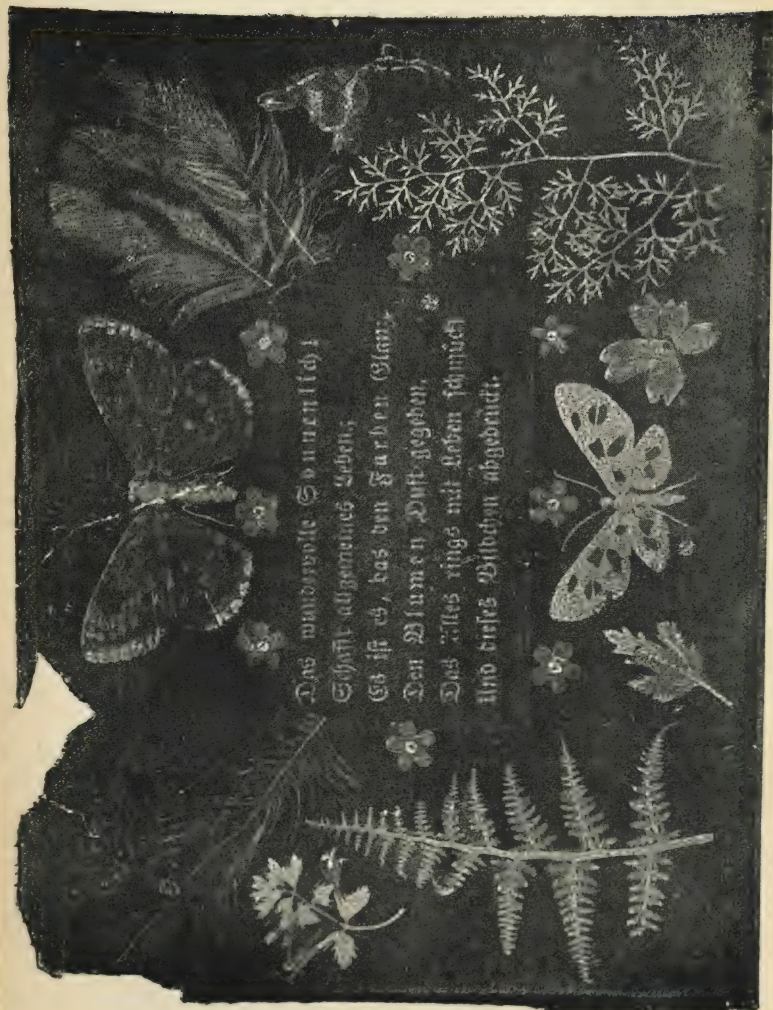 Das wundervolle Sonnenlicht
Schafft allgemeines Leben;
Es ist es, das den Farben Glanz,
Den Blumen Duft gegeben.
Das Alles rings mit Leben schmückt
Und dieses Bildchen abgedrückt.